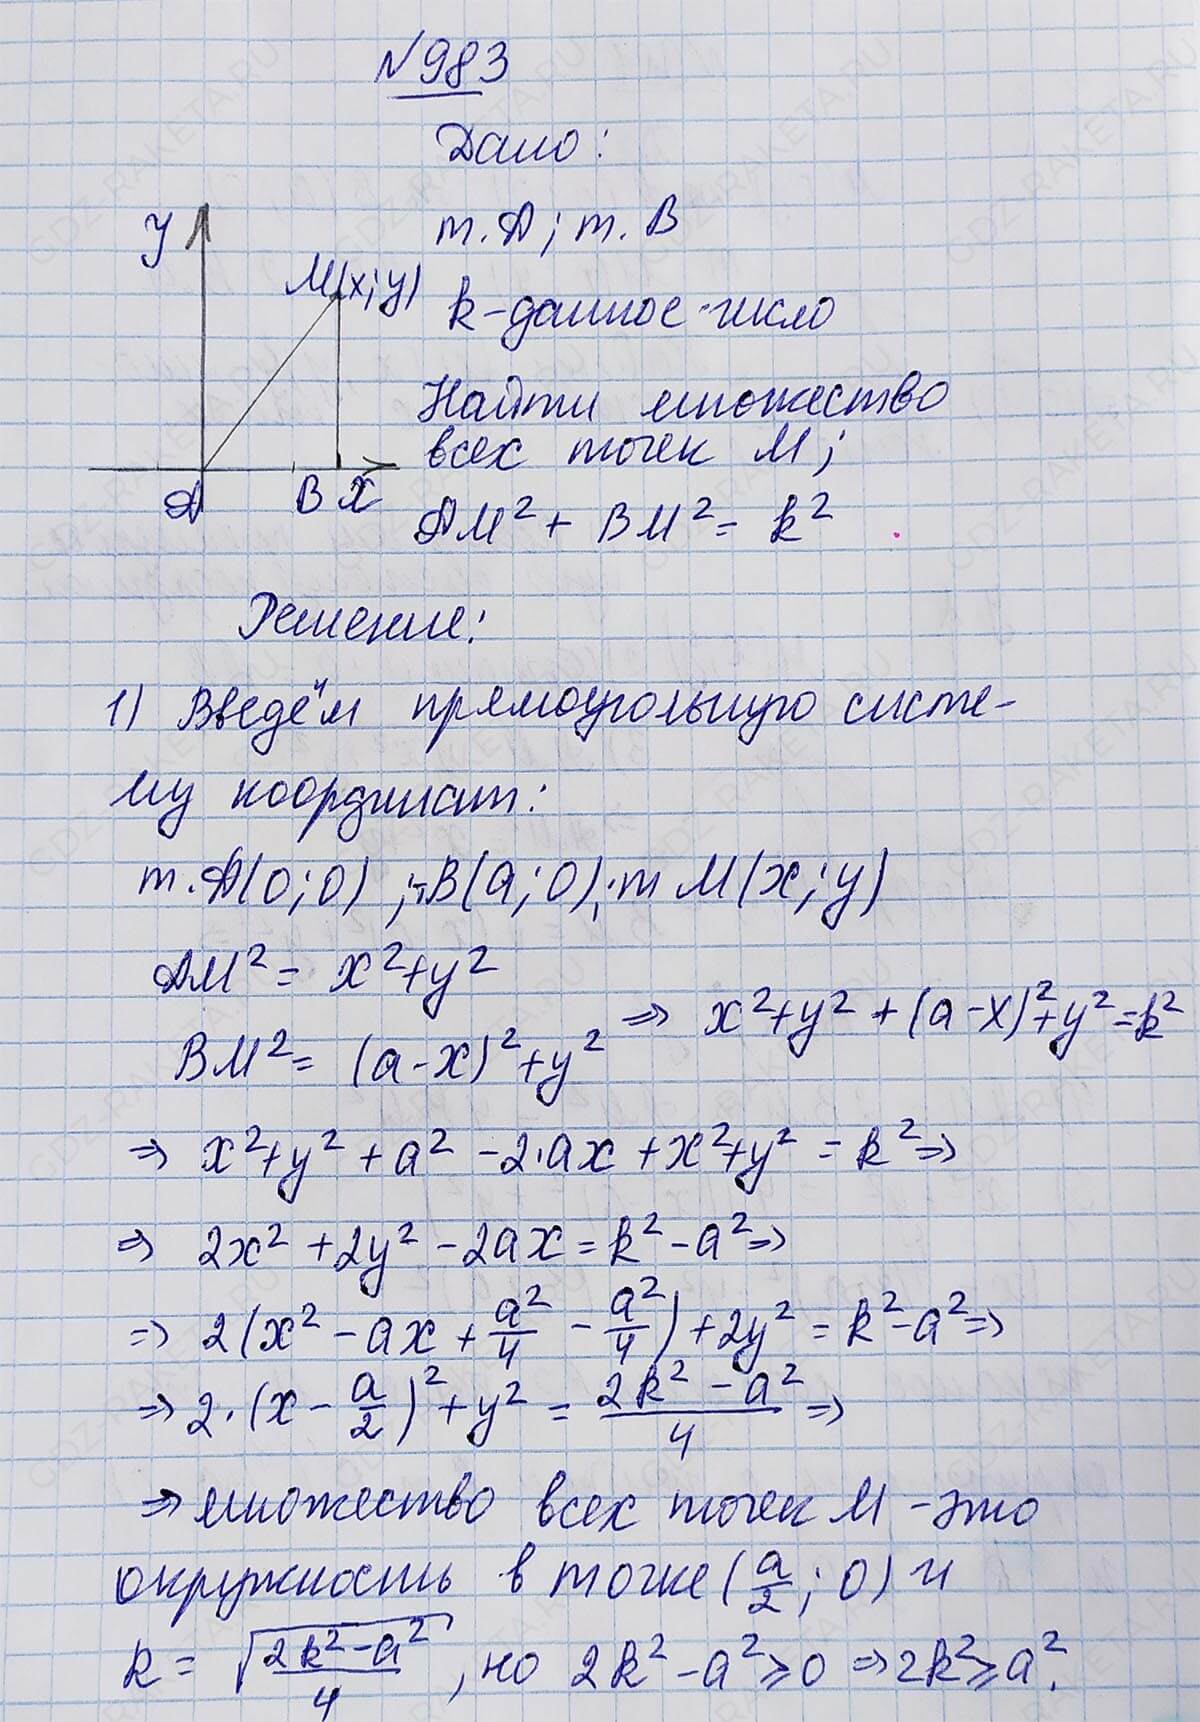 №983
Дано:
т.А; т.В
k-данное число
Найти множество
всех точек М;
АМ²+ ВМ²= k²
y
М(x;y)
А
В
x
Решение:
1) Введём прямоугольную систе-
му координат:
т.А(0;0), т.В(a;0), т М(x;y)
АМ²= x²+y²
ВМ²= (a-x)²+y²
⇒ x²+y²+(a-x)²+y²=k²
⇒ x²+y²+a²-2·ax+x²+y²=k²⇒
⇒ 2x²+2y²-2ax=k²-a²⇒
⇒ 2(x²-ax+a²/4-a²/4)+2y²=k²-a²⇒
⇒ 2·(x-a/2)²+y²=(2k²-a²)/4⇒
⇒ множество всех точек М -это
окружность в точке (a/2;0) и
R=√((2k²-a²)/4), но 2k²-a²⩾0⇒2k²⩾a².
GDZ-RAKETA.RU